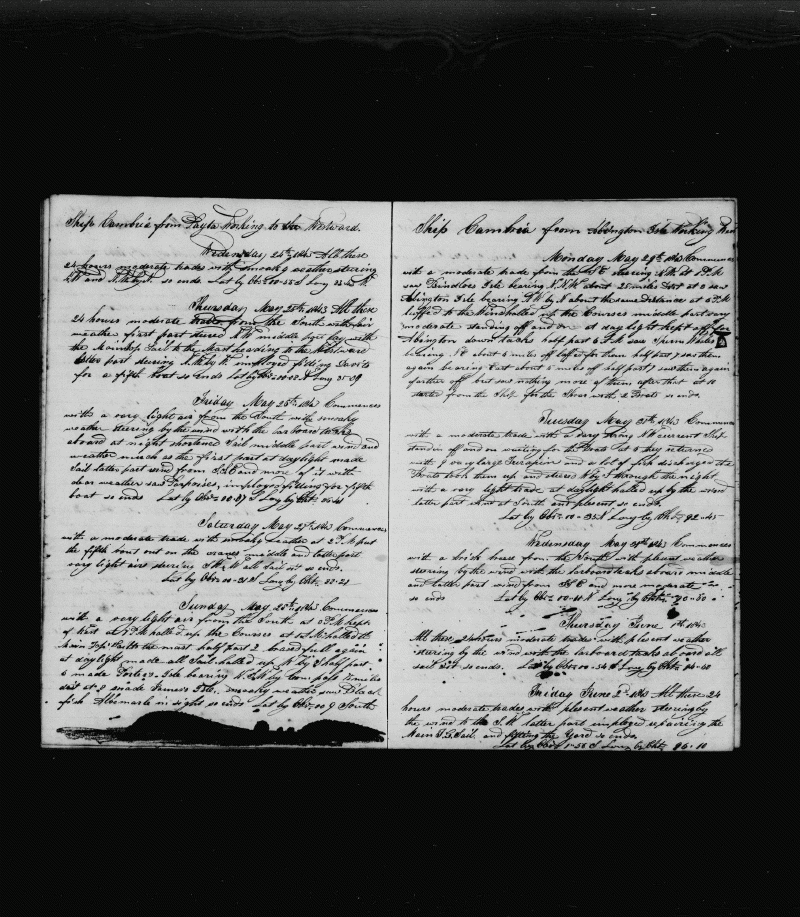 Ship Cambria from Payta Working to the Westward.
Wednesday 24th 1843 All these
24 hours moderate trades with smoaky weather steering
so ends Lat by Obs 00-55 Long
Thursday May 25th 1843 All these
24 hours moderate trades from the South with fair
weather first part steered NW middle part lay with
the Main top Sail to the Mast heading to the Westward
latter part steering imployed fitting Davits
for a fifth boat so ends Lat by Obs 00-02 Long 85-39
Friday May 26th 1843 Commences
with a very light air from the South with smoaky
weather steering by the wind with the larboard tacks
aboard at night shortened Sail middle part wind and
weather much as the first part at daylight made
Sail latter part wind from SSE and more of it with
clear weather saw Porpoises, imployed fitting for fifth
boat so ends Lat by Obs 00-37 Long by Chr
Saturday May 27th 1843 Commences
with a moderate trade with smoaky weather at 2 PM put
the fifth boat out on the cranes middle and latter part
very light airs steering all sail out so ends.
Lat by Obs 00-21 Long by Chr 88-21
Sunday May 28th 1843 Commences
with a very light air from the South. at
of East at PM halled up the Courses at halled the
Main Top Sail to the mast half part 2 braced full again
at daylight made all Sail halled up by half part
6 made Isle bearing by compass miles
dist at 8 made James Isle, smoaky weather saw Black
fish Albemarle in sight so ends Lat by Obs 00 9 South
Ship Cambria from Abington Isle Working
Monday May 29th 1843 Commences
with a moderate trade from the steering at PM
saw Isle bearing about 25 miles Dist at 6 saw
Abington Isle bearing NW by N about the same Distance at 6 PM
luffed to the Wind halled up the Courses middle part very
moderate standing off and on at daylight kept off for
Abington down tacks half part 6 AM saw Sperm Whales
bearing NE about 6 miles off luffed for them half part 7 saw them
again bearing East about 5 miles off half part saw them again
farther off but saw nothing more of them after that at 10
started from the Ship for the Shore with 2 Boats so ends.
Tuesday May 30th 1843 Commences
with a moderate trade with a very strong NW current Ship
standing off and on waiting for the Boats at 5 they returned
with 9 very large Terapin and a lot of fish discharged the
Boats took them up and steered N by through the night
with a very light trade at daylight halled up by the wind
latter part wind at South East plesent so ends.
Lat by Obs 00-35 N Long by Chr 92-45
Wednesday May 31st 1843 Commences
with a brisk breese from the South with plesent weather
steering by the wind with the larboard tacks aboard middle
and latter part wind from SSE and more moderate
so ends Lat by Obs 00-41 N Long by Chr
Thursday June 1st 1843
All these 24 hours moderate trades with plesent weather
steering by the wind with the larboard tacks aboard all
sail out so ends. Lat by Obs 00-54 Long by Chr 94-40
Friday June 2d 1843 All these 24
hours moderate trades with plesent weather steering by
the wind to the latter part imployed repairing the
Main T.G. Sail and fitting the Yard so ends.
Lat by Obs 1-56 S Long by Chr 96-10